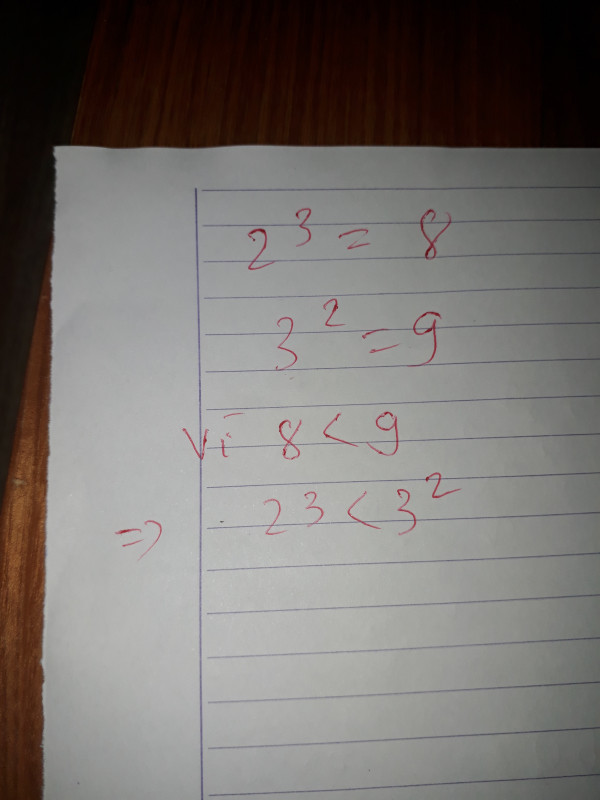 2³ = 8
3² = 9
Vì 8 < 9
=> 2³ < 3²